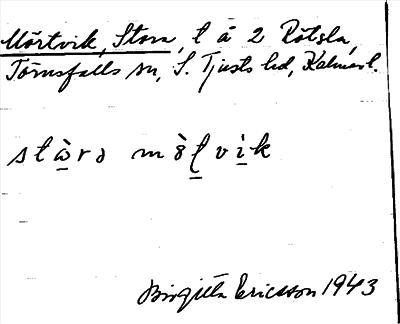 Mörtvik, Stora, t å 2 Rötsla,
Törnsfalls sn, S. Tjusts hd, Kalmar l.
stὼrɔ mö̀ʈvìk
Birgitta Ericsson 1943